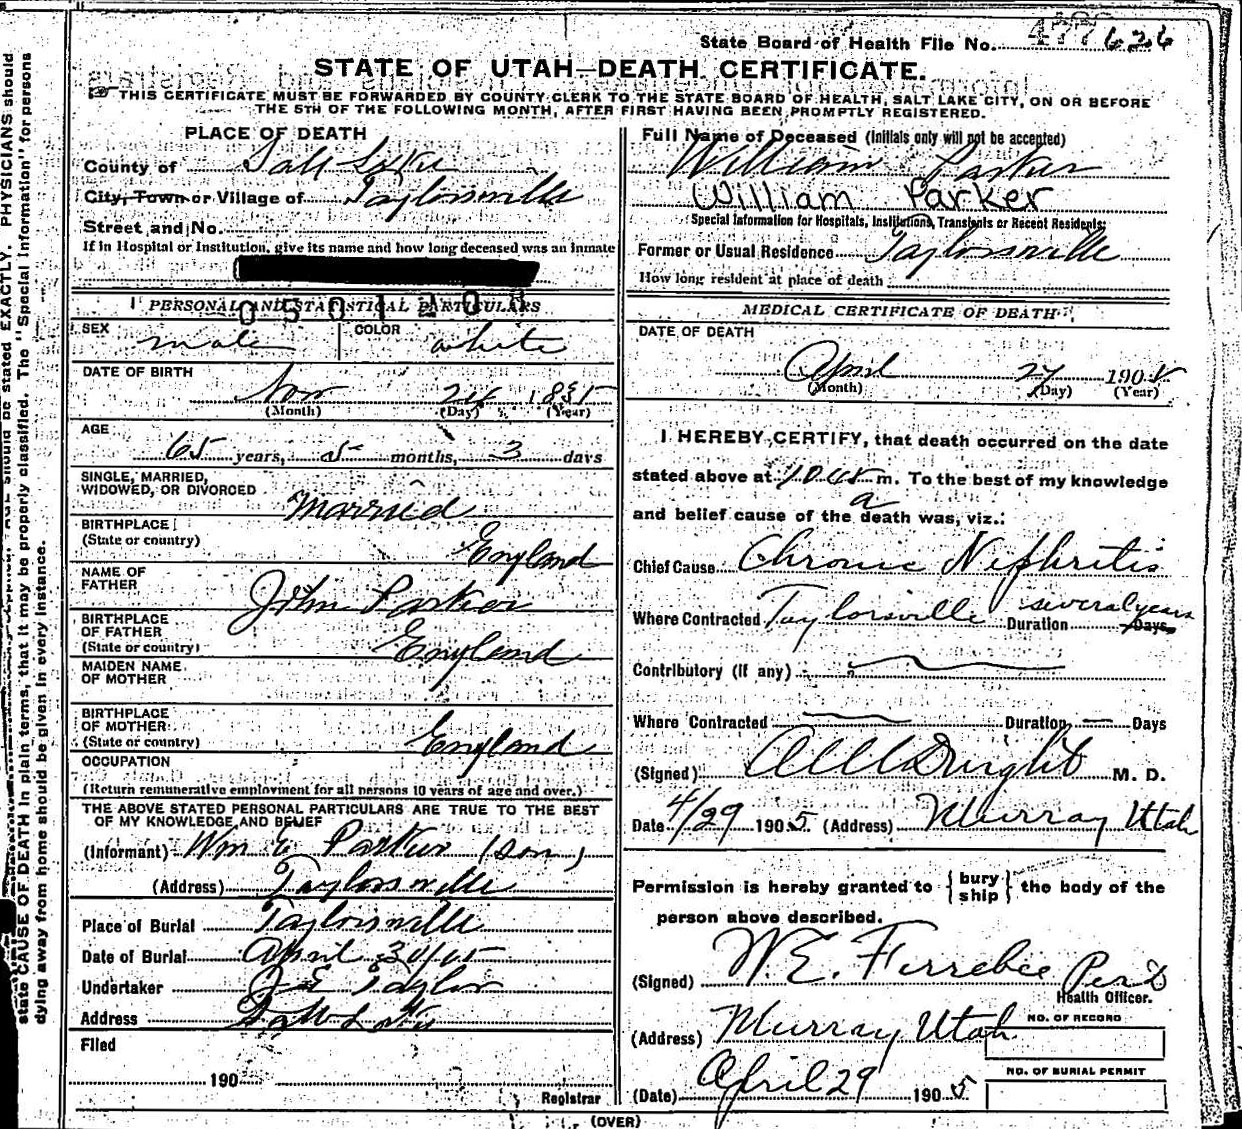 State Board of Health File No. 477 626
STATE OF UTAH—DEATH CERTIFICATE.
THIS CERTIFICATE MUST BE FORWARDED BY COUNTY CLERK TO THE STATE BOARD OF HEALTH, SALT LAKE CITY, ON OR BEFORE
THE 5TH OF THE FOLLOWING MONTH, AFTER FIRST HAVING BEEN PROMPTLY REGISTERED.
PLACE OF DEATH
County of Salt Lake
City, Town or Village of Taylorsville
Street and No.
If in Hospital or Institution, give its name and how long deceased was an inmate
PERSONAL AND STATISTICAL PARTICULARS
0501200
SEX male COLOR white
DATE OF BIRTH
Nov 24 1835
(Month) (Day) (Year)
AGE
65 years, 5 months, 3 days
SINGLE, MARRIED,
WIDOWED, OR DIVORCED Married
BIRTHPLACE
(State or country) England
NAME OF
FATHER John Parker
BIRTHPLACE
OF FATHER
(State or country) England
MAIDEN NAME
OF MOTHER
BIRTHPLACE
OF MOTHER
(State or country) England
OCCUPATION
(Return remunerative employment for all persons 10 years of age and over.)
THE ABOVE STATED PERSONAL PARTICULARS ARE TRUE TO THE BEST
OF MY KNOWLEDGE AND BELIEF
(Informant) Wm E Parker (son)
(Address) Taylorsville
Place of Burial Taylorsville
Date of Burial April 30/05
Undertaker Taylor
Address Salt Lake
Filed
190
Registrar
Full Name of Deceased (Initials only will not be accepted)
William Parker
William Parker
Special Information for Hospitals, Institutions, Transients or Recent Residents:
Former or Usual Residence Taylorsville
How long resident at place of death
MEDICAL CERTIFICATE OF DEATH
DATE OF DEATH
April 27 190
(Month) (Day) (Year)
I HEREBY CERTIFY, that death occurred on the date
stated above at 10 45 a m. To the best of my knowledge
and belief cause of the death was, viz.:
Chief Cause Chronic Nephritis
Where Contracted Taylorsville Duration several years Days
Contributory (if any)
Where Contracted — Duration — Days
(Signed) Wright M. D.
Date 4/29 1905. (Address) Murray Utah
Permission is hereby granted to { bury
ship } the body of the
person above described.
(Signed) W. E. Ferrebee
Health Officer.
(Address) Murray Utah
NO. OF RECORD
NO. OF BURIAL PERMIT
(Date) April 29 1905
(OVER)
EXACTLY. PHYSICIANS should
state CAUSE OF DEATH in plain terms, that it may be properly classified. The "Special Information" for persons
dying away from home should be given in every instance.